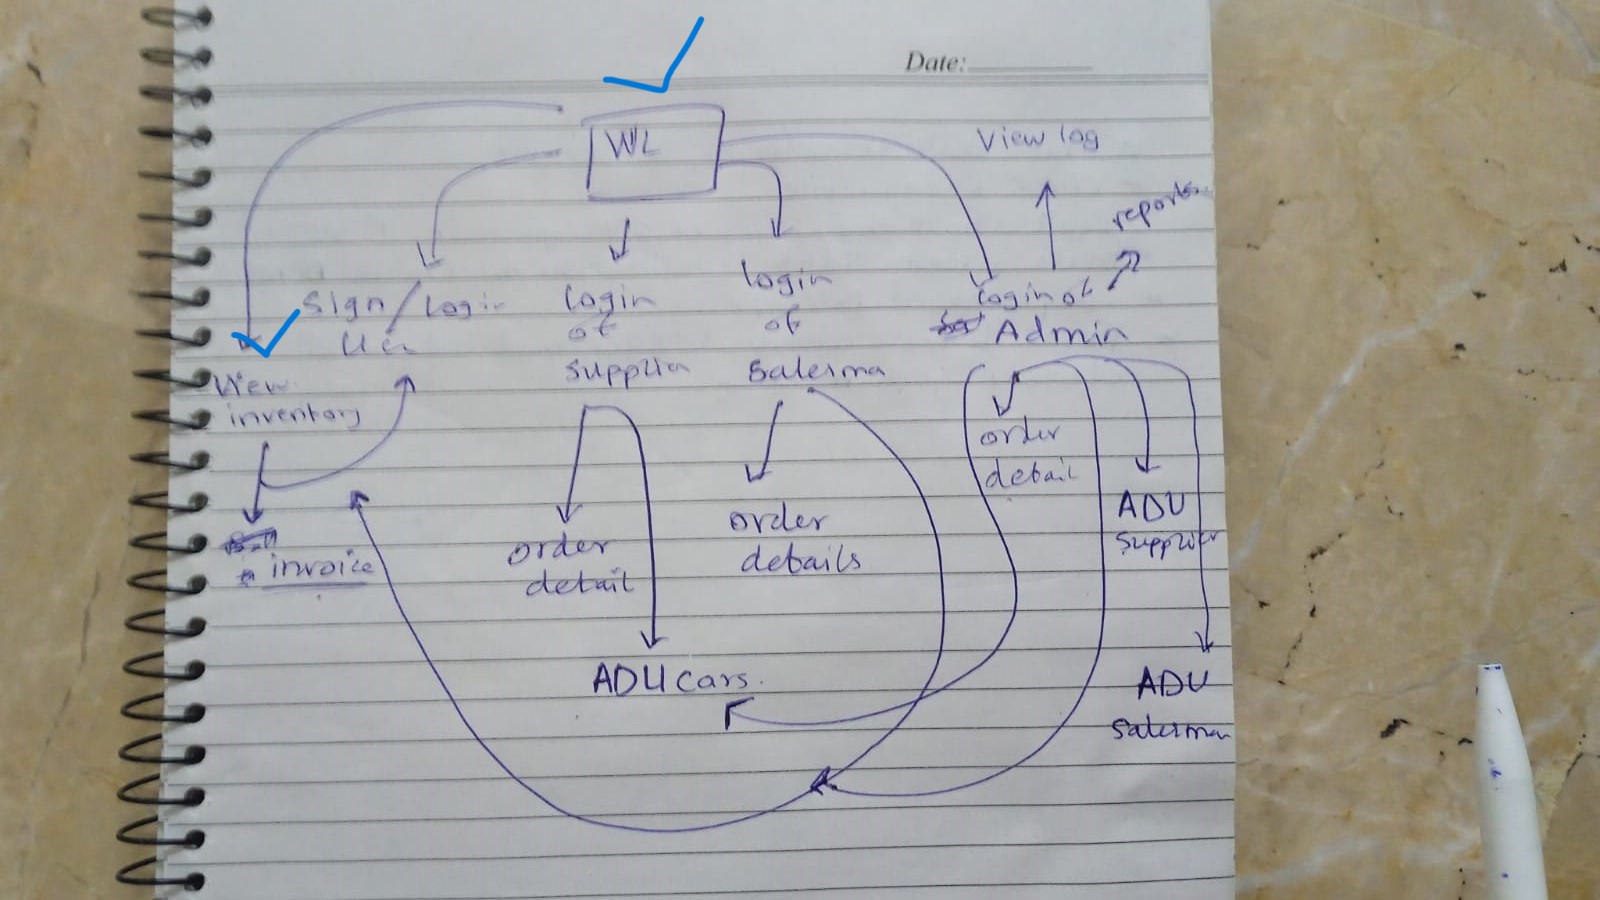 Date:
WL
View log
reports
Sign / Login
login
of
supplier
login
of
Salesma
login of
Admin
View
inventory
invoice
order
detail
order
details
order
detail
ADU
supplier
ADU cars.
ADU
salesman